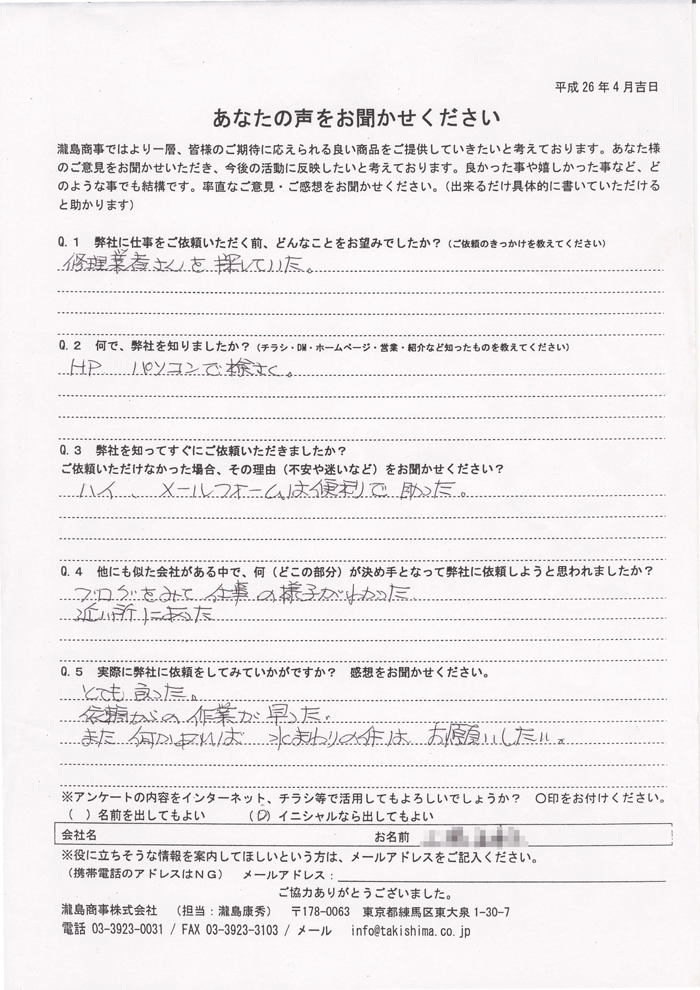 平成26年4月吉日
あなたの声をお聞かせください
瀧島商事ではより一層、皆様のご期待に応えられる良い商品をご提供していきたいと考えております。あなた様
のご意見をお聞かせいただき、今後の活動に反映したいと考えております。良かった事や嬉しかった事など、ど
のような事でも結構です。率直なご意見・ご感想をお聞かせください。（出来るだけ具体的に書いていただける
と助かります）
Q.1 弊社に仕事をご依頼いただく前、どんなことをお望みでしたか？（ご依頼のきっかけを教えてください）
修理業者さんを探していた。
Q.2 何で、弊社を知りましたか？（チラシ・DM・ホームページ・営業・紹介など知ったものを教えてください）
HP パソコンで検さく。
Q.3 弊社を知ってすぐにご依頼いただきましたか？
ご依頼いただけなかった場合、その理由（不安や迷いなど）をお聞かせください？
ハイ、メールフォームは便利で助った。
Q.4 他にも似た会社がある中で、何（どこの部分）が決め手となって弊社に依頼しようと思われましたか？
ブログをみて仕事の様子がわかった
近い所にあった
Q.5 実際に弊社に依頼をしてみていかがですか？ 感想をお聞かせください。
とても良った。
依頼からの作業が早った。
また何かあれば水まわりの件はお願いしたい。
※アンケートの内容をインターネット、チラシ等で活用してもよろしいでしょうか？ ○印をお付けください。
（ ）名前を出してもよい （○）イニシャルなら出してもよい
会社名 お名前
※役に立ちそうな情報を案内してほしいという方は、メールアドレスをご記入ください。
（携帯電話のアドレスはNG） メールアドレス：
ご協力ありがとうございました。
瀧島商事株式会社 （担当：瀧島康秀） 〒178-0063 東京都練馬区東大泉1-30-7
電話 03-3923-0031 / FAX 03-3923-3103 / メール info@takishima.co.jp